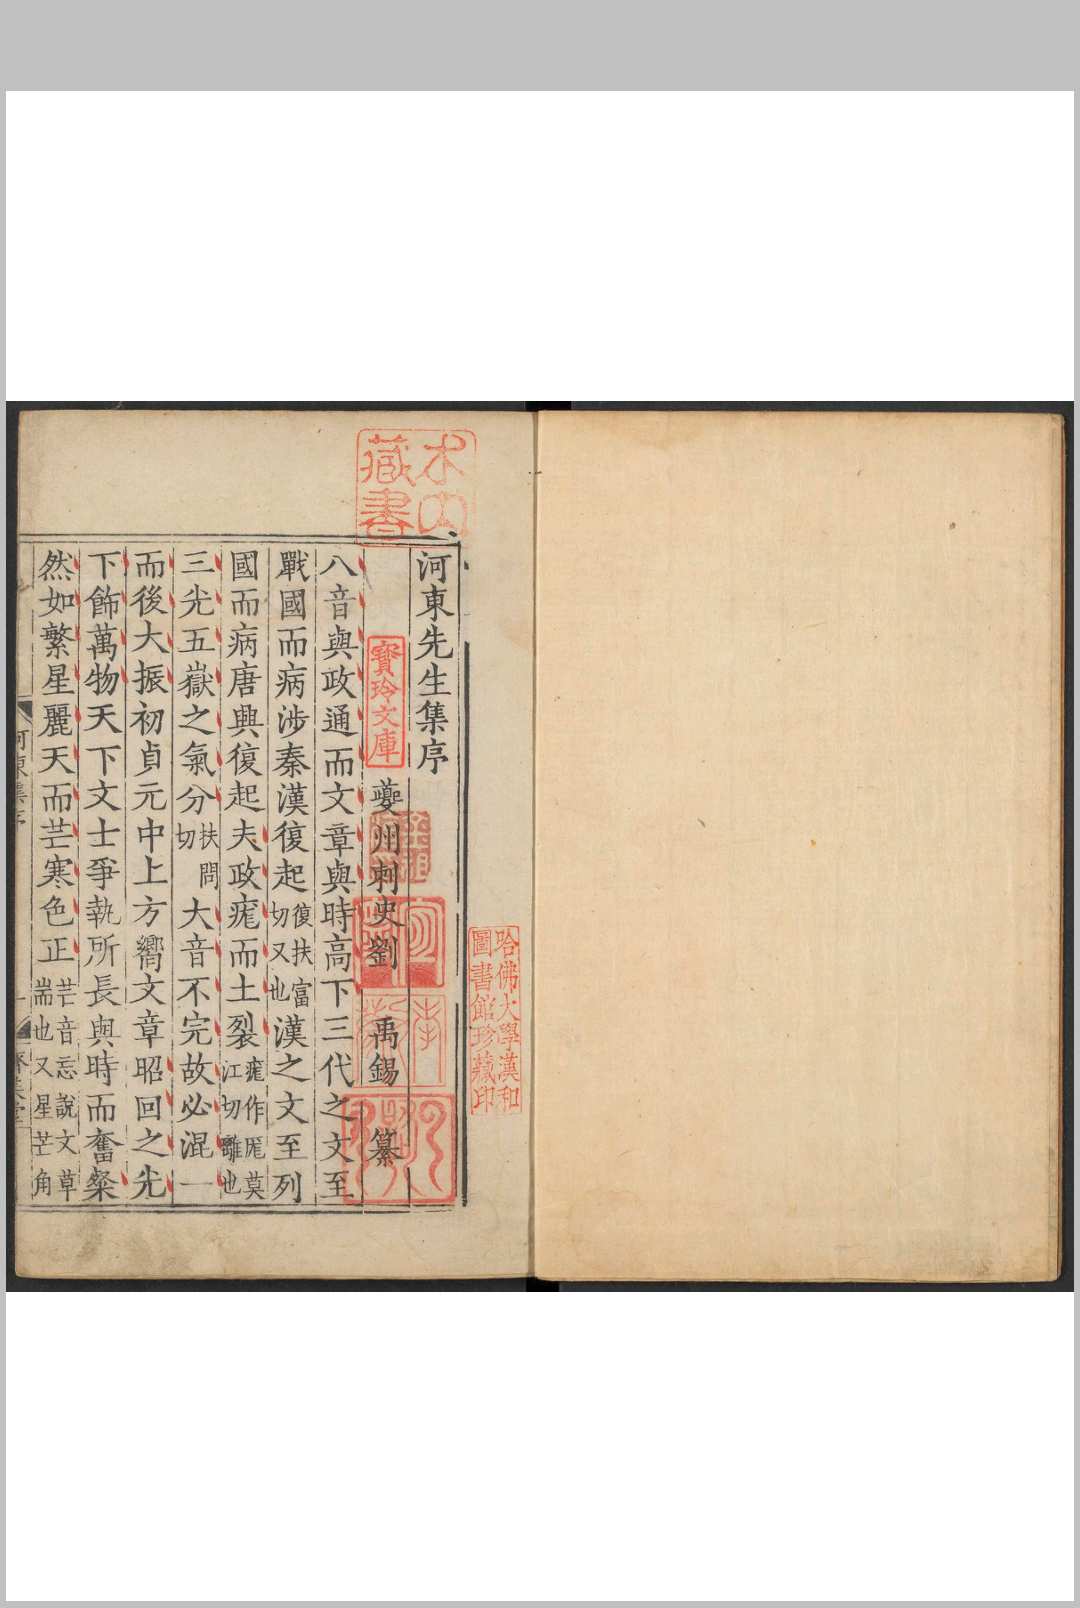 河東先生集序
夔州刺史劉 禹錫 纂
八音與政通而文章與時高下三代之文至
戰國而病涉秦漢復起復扶富切又也漢之文至列
國而病唐興復起夫政厖而土裂厖作厖莫江切離也
三光五嶽之氣分扶問切大音不完故必混一
而後大振初貞元中上方嚮文章昭回之光
下飾萬物天下文士爭執所長與時而奮粲
然如繁星麗天而芒寒色正芒音忘說文草耑也又星芒角
河東集序
木山藏書
寶玲文庫
哈佛大學漢和圖書館珍藏印